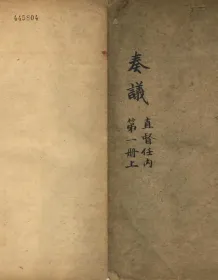 奏議
直督任內
第一册上
445604